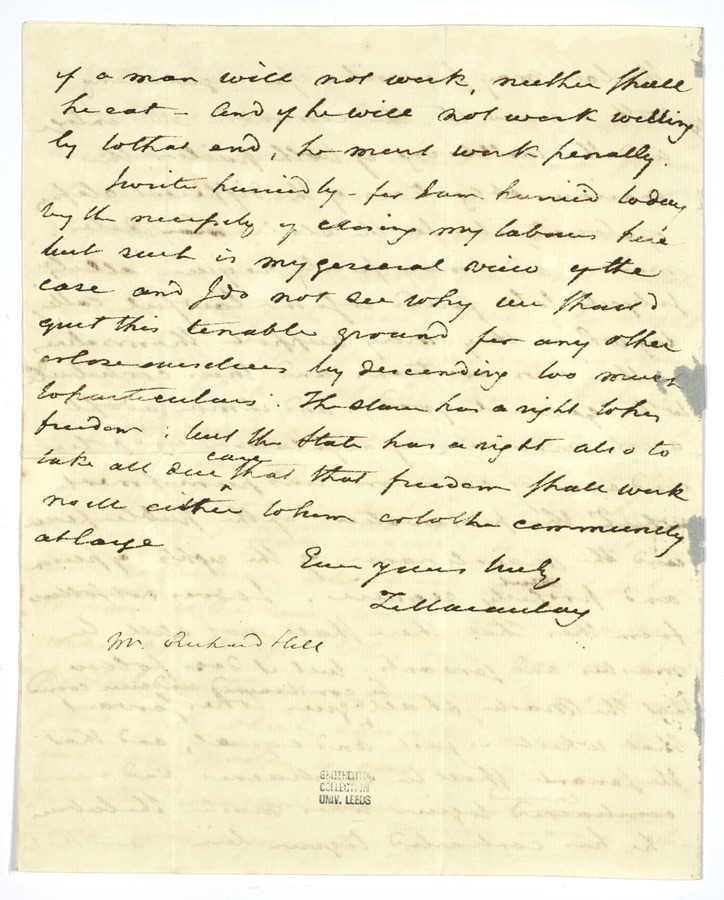 if a man will not work, neither shall
he eat - And if he will not work willing
ly to that end, he must work penally.
I write hurriedly - for I am hurried today
by the necessity of closing my labours here
but such is my general view of the
case and I do not see why we should
quit this tenable ground for any other
or lose ourselves by descending too much
to particulars. The slave has a right to his
freedom; but the State has a right also to
take all due care that that freedom shall work
no ill either to him or to the community
at large
Ever yours truly
Z Macaulay
Mr. Richard Hill
BROTHERTON
COLLECTION
UNIV. LEEDS